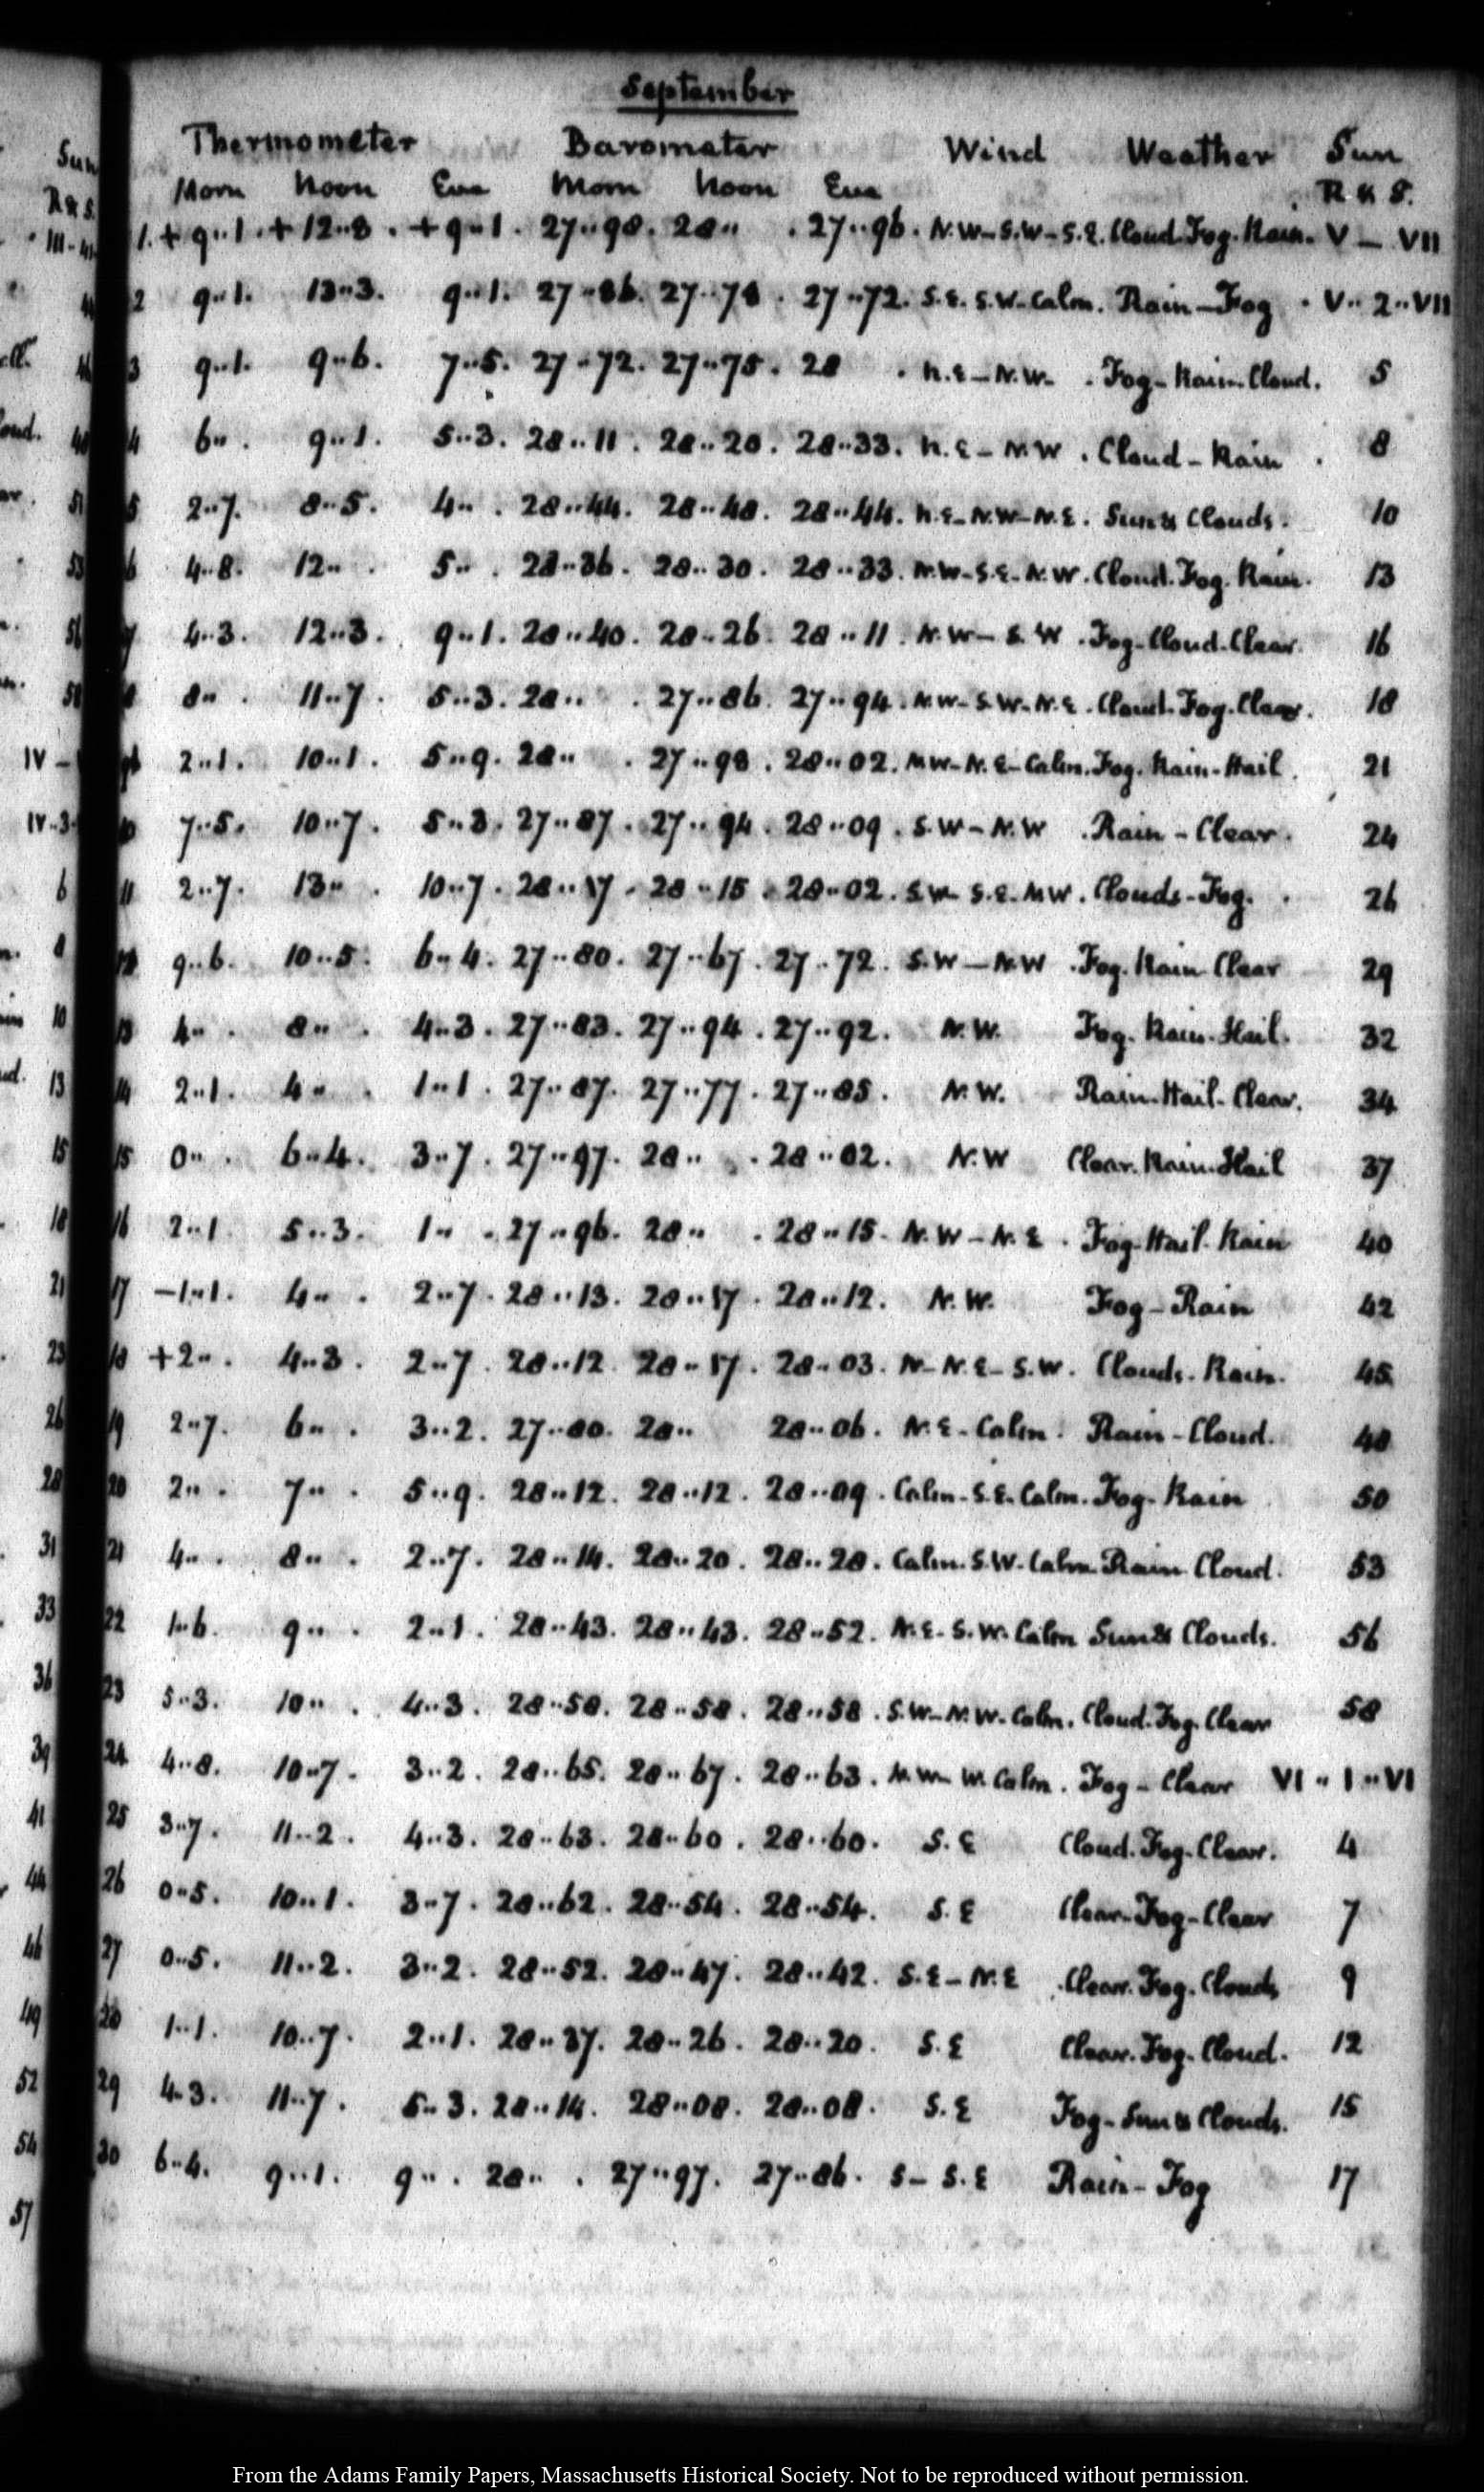 September
Thermometer Barometer Wind Weather Sun
Morn Noon Eve Morn Noon Eve R & S.
1. + 9..1. + 12..8. + 9..1. 27..98. 28.. . 27..96. N.W-S.W-S.E. Cloud. Fog. Rain. V — VII
2 9..1. 13..3. 9..1. 27..86. 27..78. 27..72. S.E. S.W-Calm. Rain-Fog. V..2..VII
3 9..1. 9..6. 7..5. 27..72. 27..75. 28 . N.E-N.W. . Fog-Rain-Cloud. 5
4 6.. . 9..1. 5..3. 28..11. 28..20. 28..33. N.E-NW. Cloud-Rain . 8
5 2..7. 8..5. 4.. . 28..44. 28..48. 28..44. N.E-N.W-N.E. Sun & Clouds. 10
6 4..8. 12.. . 5.. . 28..36. 28..30. 28..33. N.W-S.E-N.W. Cloud. Fog. Rain. 13
7 4..3. 12..3. 9..1. 28..40. 28..26. 28..11. N.W-S.W. Fog-Cloud-Clear. 16
8 8.. . 11..7. 5..3. 28.. . 27..86. 27..94. N.W-S.W-N.E. Cloud. Fog. Clear. 18
9 2..1. 10..1. 5..9. 28.. . 27..98. 28..02. NW-N.E-Calm. Fog. Rain-Hail. 21
10 7..5. 10..7. 5..3. 27..87. 27..94. 28..09. S.W-N.W. Rain-Clear. 24
11 2..7. 13.. . 10..7. 28..17. 28..15. 28..02. S.W- S.E-NW. Clouds-Fog. . 26
12 9..6. 10..5. 6..4. 27..80. 27..67. 27..72. S.W-N.W. Fog. Rain. Clear 29
13 4.. . 8.. . 4..3. 27..83. 27..94. 27..92. N.W. Fog. Rain. Hail. 32
14 2..1. 4.. . 1..1. 27..87. 27..77. 27..85. N.W. Rain-Hail-Clear. 34
15 0.. . 6..4. 3..7. 27..97. 28.. . 28..02. N.W Clear. Rain. Hail 37
16 2..1. 5..3. 1.. . 27..96. 28.. . 28..15. N.W-N.E. Fog-Hail-Rain 40
17 -1..1. 4.. . 2..7. 28..13. 28..17. 28..12. N.W. Fog-Rain 42
18 +2.. . 4..3. 2..7. 28..12. 28..17. 28..03. N-N.E-S.W. Clouds. Rain. 45
19 2..7. 6.. . 3..2. 27..80. 28.. 28..06. N.E-Calm. Rain-Cloud. 48
20 2.. . 7.. . 5..9. 28..12. 28..12. 28..09. Calm-S.E. Calm. Fog-Rain 50
21 4.. . 8.. . 2..7. 28..14. 28..20. 28..28. Calm. S.W. Calm. Rain Cloud. 53
22 1..6. 9.. . 2..1. 28..43. 28..43. 28..52. N.E-S.W. Calm Sun & Clouds. 56
23 5..3. 10.. . 4..3. 28..58. 28..58. 28..58. S.W-N.W. Calm. Cloud. Fog. Clear 58
24 4..8. 10..7. 3..2. 28..65. 28..67. 28..63. N.W- W. Calm. Fog-Clear VI..1..VI
25 3..7. 11..2. 4..3. 28..63. 28..60. 28..60. S.E Cloud. Fog. Clear. 4
26 0..5. 10..1. 3..7. 28..62. 28..54. 28..54. S.E Clear-Fog-Clear 7
27 0..5. 11..2. 3..2. 28..52. 28..47. 28..42. S.E-N.E. Clear. Fog. Clouds 9
28 1..1. 10..7. 2..1. 28..37. 28..26. 28..20. S.E Clear. Fog. Cloud. 12
29 4..3. 11..7. 5..3. 28..14. 28..08. 28..08. S.E Fog-Sun & Clouds. 15
30 6..4. 9..1. 9.. . 28.. . 27..97. 27..86. S-S.E Rain-Fog 17
From the Adams Family Papers, Massachusetts Historical Society. Not to be reproduced without permission.